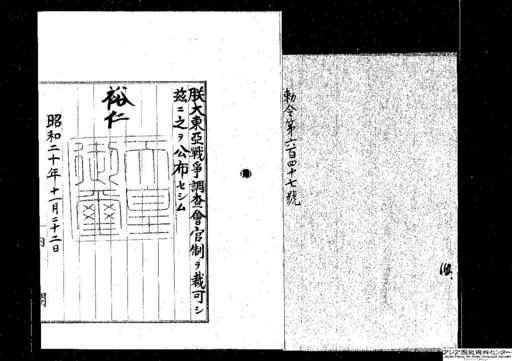 勅令第六百四十七號
朕大東亞戰爭調査會官制ヲ裁可シ
茲ニ之ヲ公布セシム
裕仁
天皇御璽
昭和二十年十一月二十二日
内閣
アジア歴史資料センター